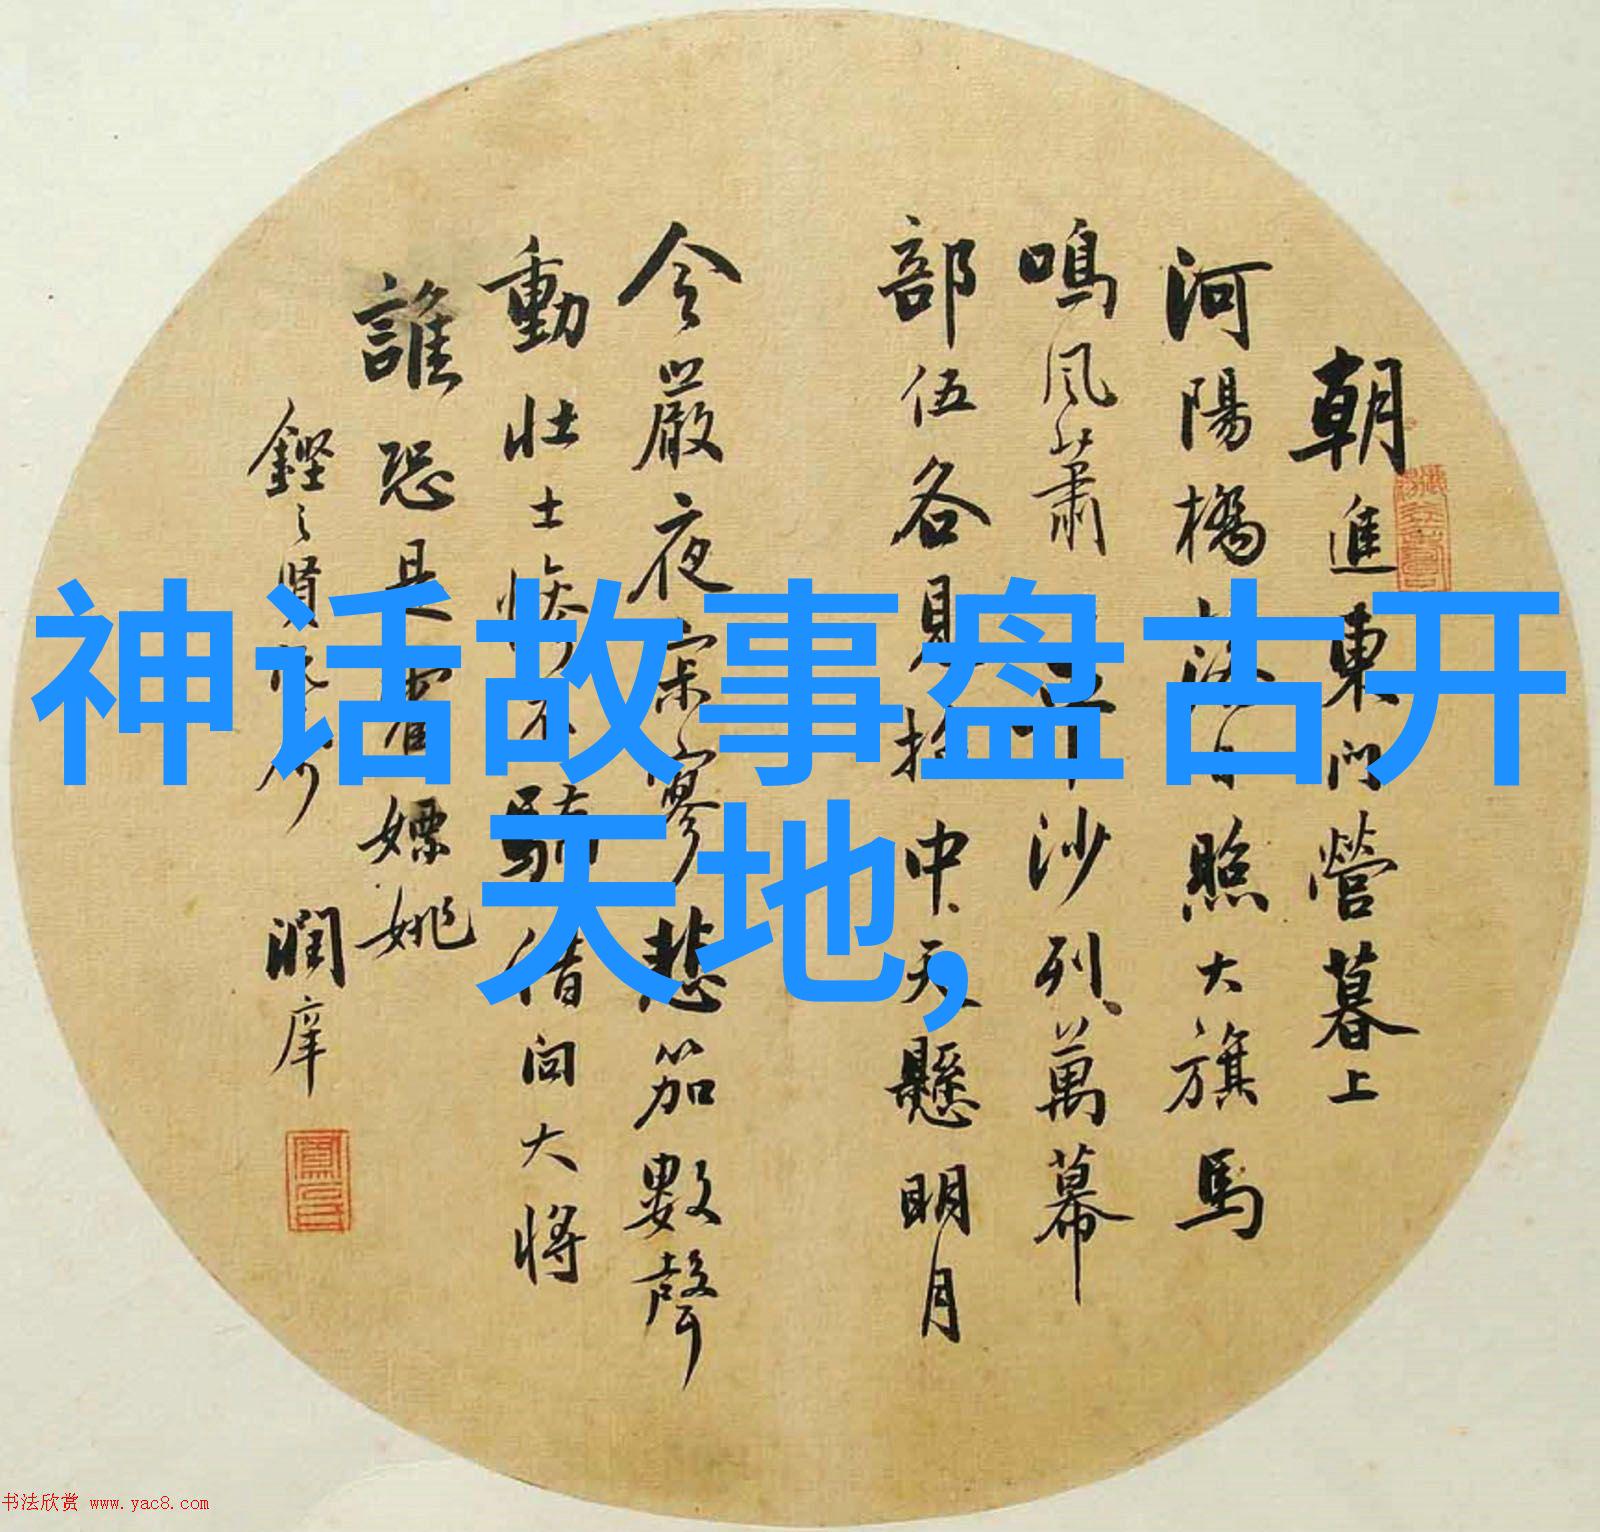 朝進東門營暮上
河陽橋落日照大旗馬
鳴風蕭
沙列萬幕
部伍各見招中天懸明月
令嚴夜寂寥悲笳數聲
動壯士慘不驕借问大將
誰恐是霍嫖姚
潤庠
神话故事盘古开
天地,
书法欣赏 www.yac8.com